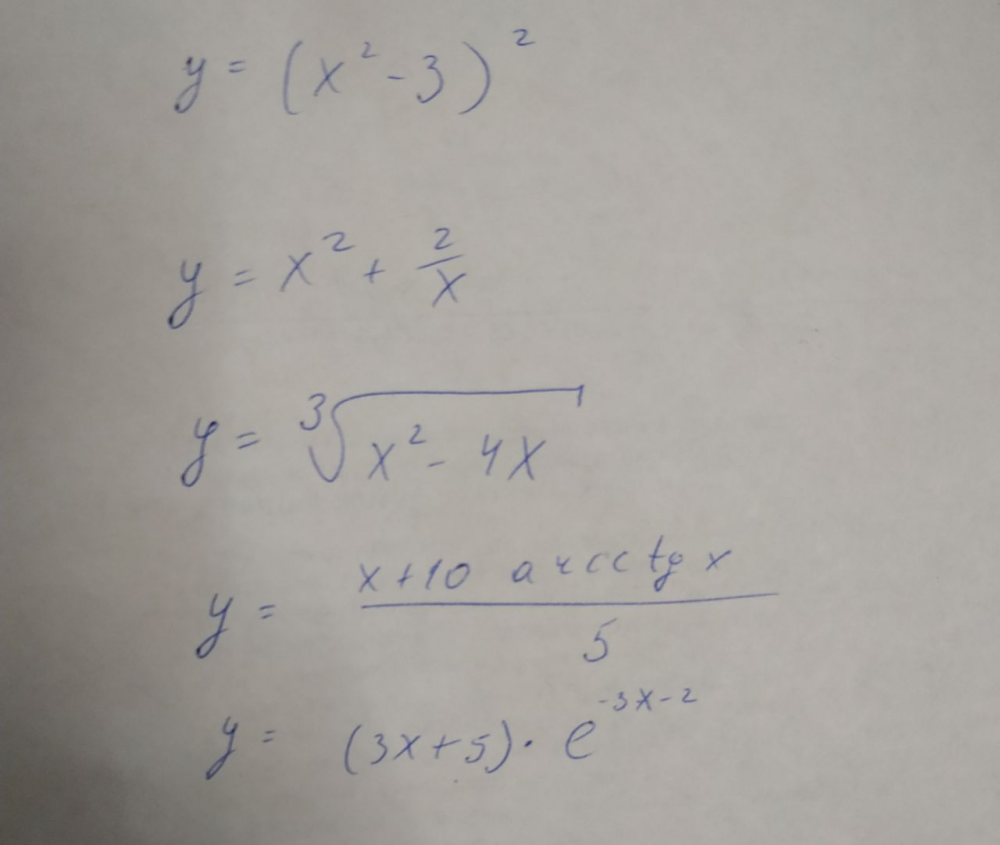 y = (x² - 3)²
y = x² + 2/x
y = ∛(x² - 4x)
y = (x + 10 arcctg x)/5
y = (3x + 5) · e^(-3x-2)